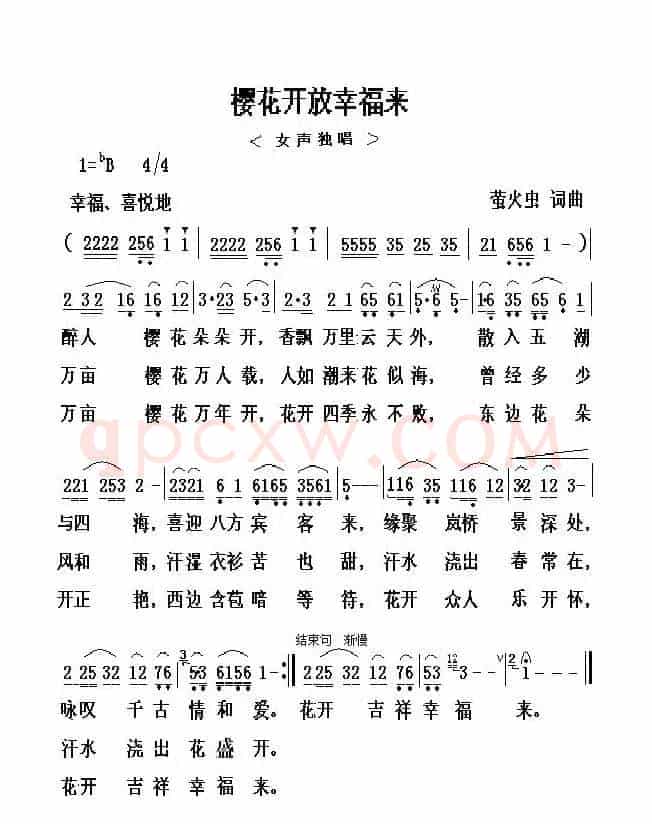 樱花开放幸福来
< 女声独唱 >
1=ᵇB 4/4
幸福、喜悦地 萤火虫 词曲
( 2222 256 1 1 | 2222 256 1 1 | 5555 35 25 35 | 21 656 1 - )|
2 32 16 16 12 | 3·23 5·3 | 2·3 21 65 61 | 5·6 5- | 1·6 35 65 6 1
醉人 樱花朵朵开，香飘万里云天外，散入五湖
万亩 樱花万人载，人如潮来花似海，曾经多少
万亩 樱花万年开，花开四季永不败，东边花朵
qpcxw.COM
221 253 2- | 2321 6 1 6165 3561 | 5-- 116 35 | 116 12 32 12 3- |
与四 海，喜迎八方宾客来，缘聚岚桥景深处，
风和 雨，汗湿衣衫苦也甜，汗水浇出春常在，
开正 艳，西边含苞暗等待，花开众人乐开怀，
结束句 渐慢
2 25 32 12 76 | 53 6156 1- :| 2 25 32 12 76 | 53 3-- | 1- ||
咏叹 千古情和爱。花开吉祥幸福来。
汗水 浇出花盛开。
花开 吉祥幸福来。